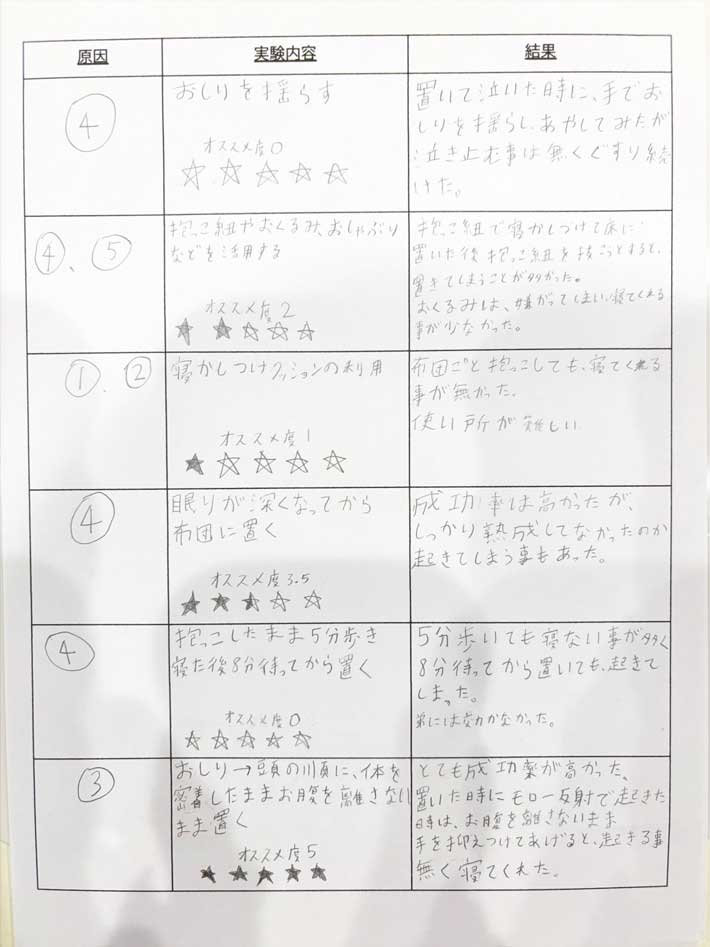 原因 実験内容 結果
④
おしりを揺らす
オススメ度0
☆☆☆☆☆
置いて泣いた時に、手でお
しりを揺らし、あやしてみたが
泣き止む事は無くぐずり続
けた。
④、⑤
抱っこ紐やおくるみ、おしゃぶり
などを活用する
オススメ度2
★★☆☆☆
抱っこ紐で寝かしつけて床に
置いた後抱っこ紐を抜こうとすると、
置きてしまうことが多かった。
おくるみは、嫌がってしまい、寝てくれる
事が少なかった。
①、②
寝かしつけクッションの利用
オススメ度1
★☆☆☆☆
布団ごと抱っこしても、寝てくれる
事が無かった。
使い所が難しい
④
眠りが深くなってから
布団に置く
オススメ度3.5
★★★☆☆
成功率は高かったが、
しっかり熟成してなかったのか
起きてしまう事もあった。
④
抱っこしたまま5分歩き
寝た後8分待ってから置く
オススメ度0
☆☆☆☆☆
5分歩いても寝ない事が多く
8分待ってから置いても、起きて
しまった。
弟には効かなかった。
③
おしり→頭の順に、体を
密着したままお腹を離さない
まま置く
オススメ度5
★★★★★
とても成功率が高かった、
置いた時にモロー反射で起きた
時は、お腹を離さないまま
手を抑えつけてあげると、起きる事
無く寝てくれた。